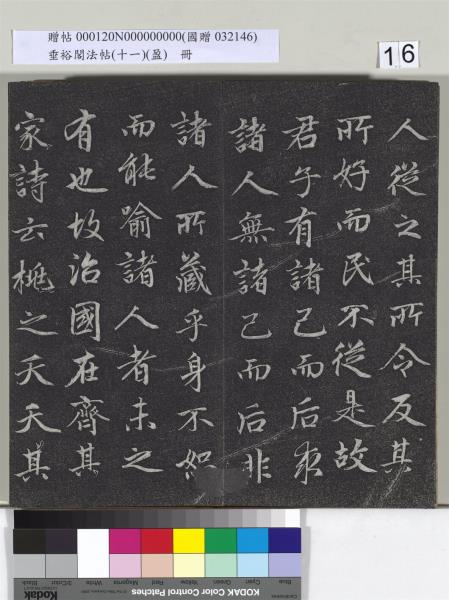 贈帖 000120N000000000(國贈 032146)
垂裕閣法帖(十一)(盈) 冊
16
人從之其所令反其
所好而民不從是故
君子有諸己而后求
諸人無諸己而后非
諸人所藏乎身不恕
而能喻諸人者未之
有也故治國在齊其
家詩云桃之夭夭其
Blue Cyan Green Yellow Red Magenta White 3/Color Black
Kodak
KODAK Color Control Patches